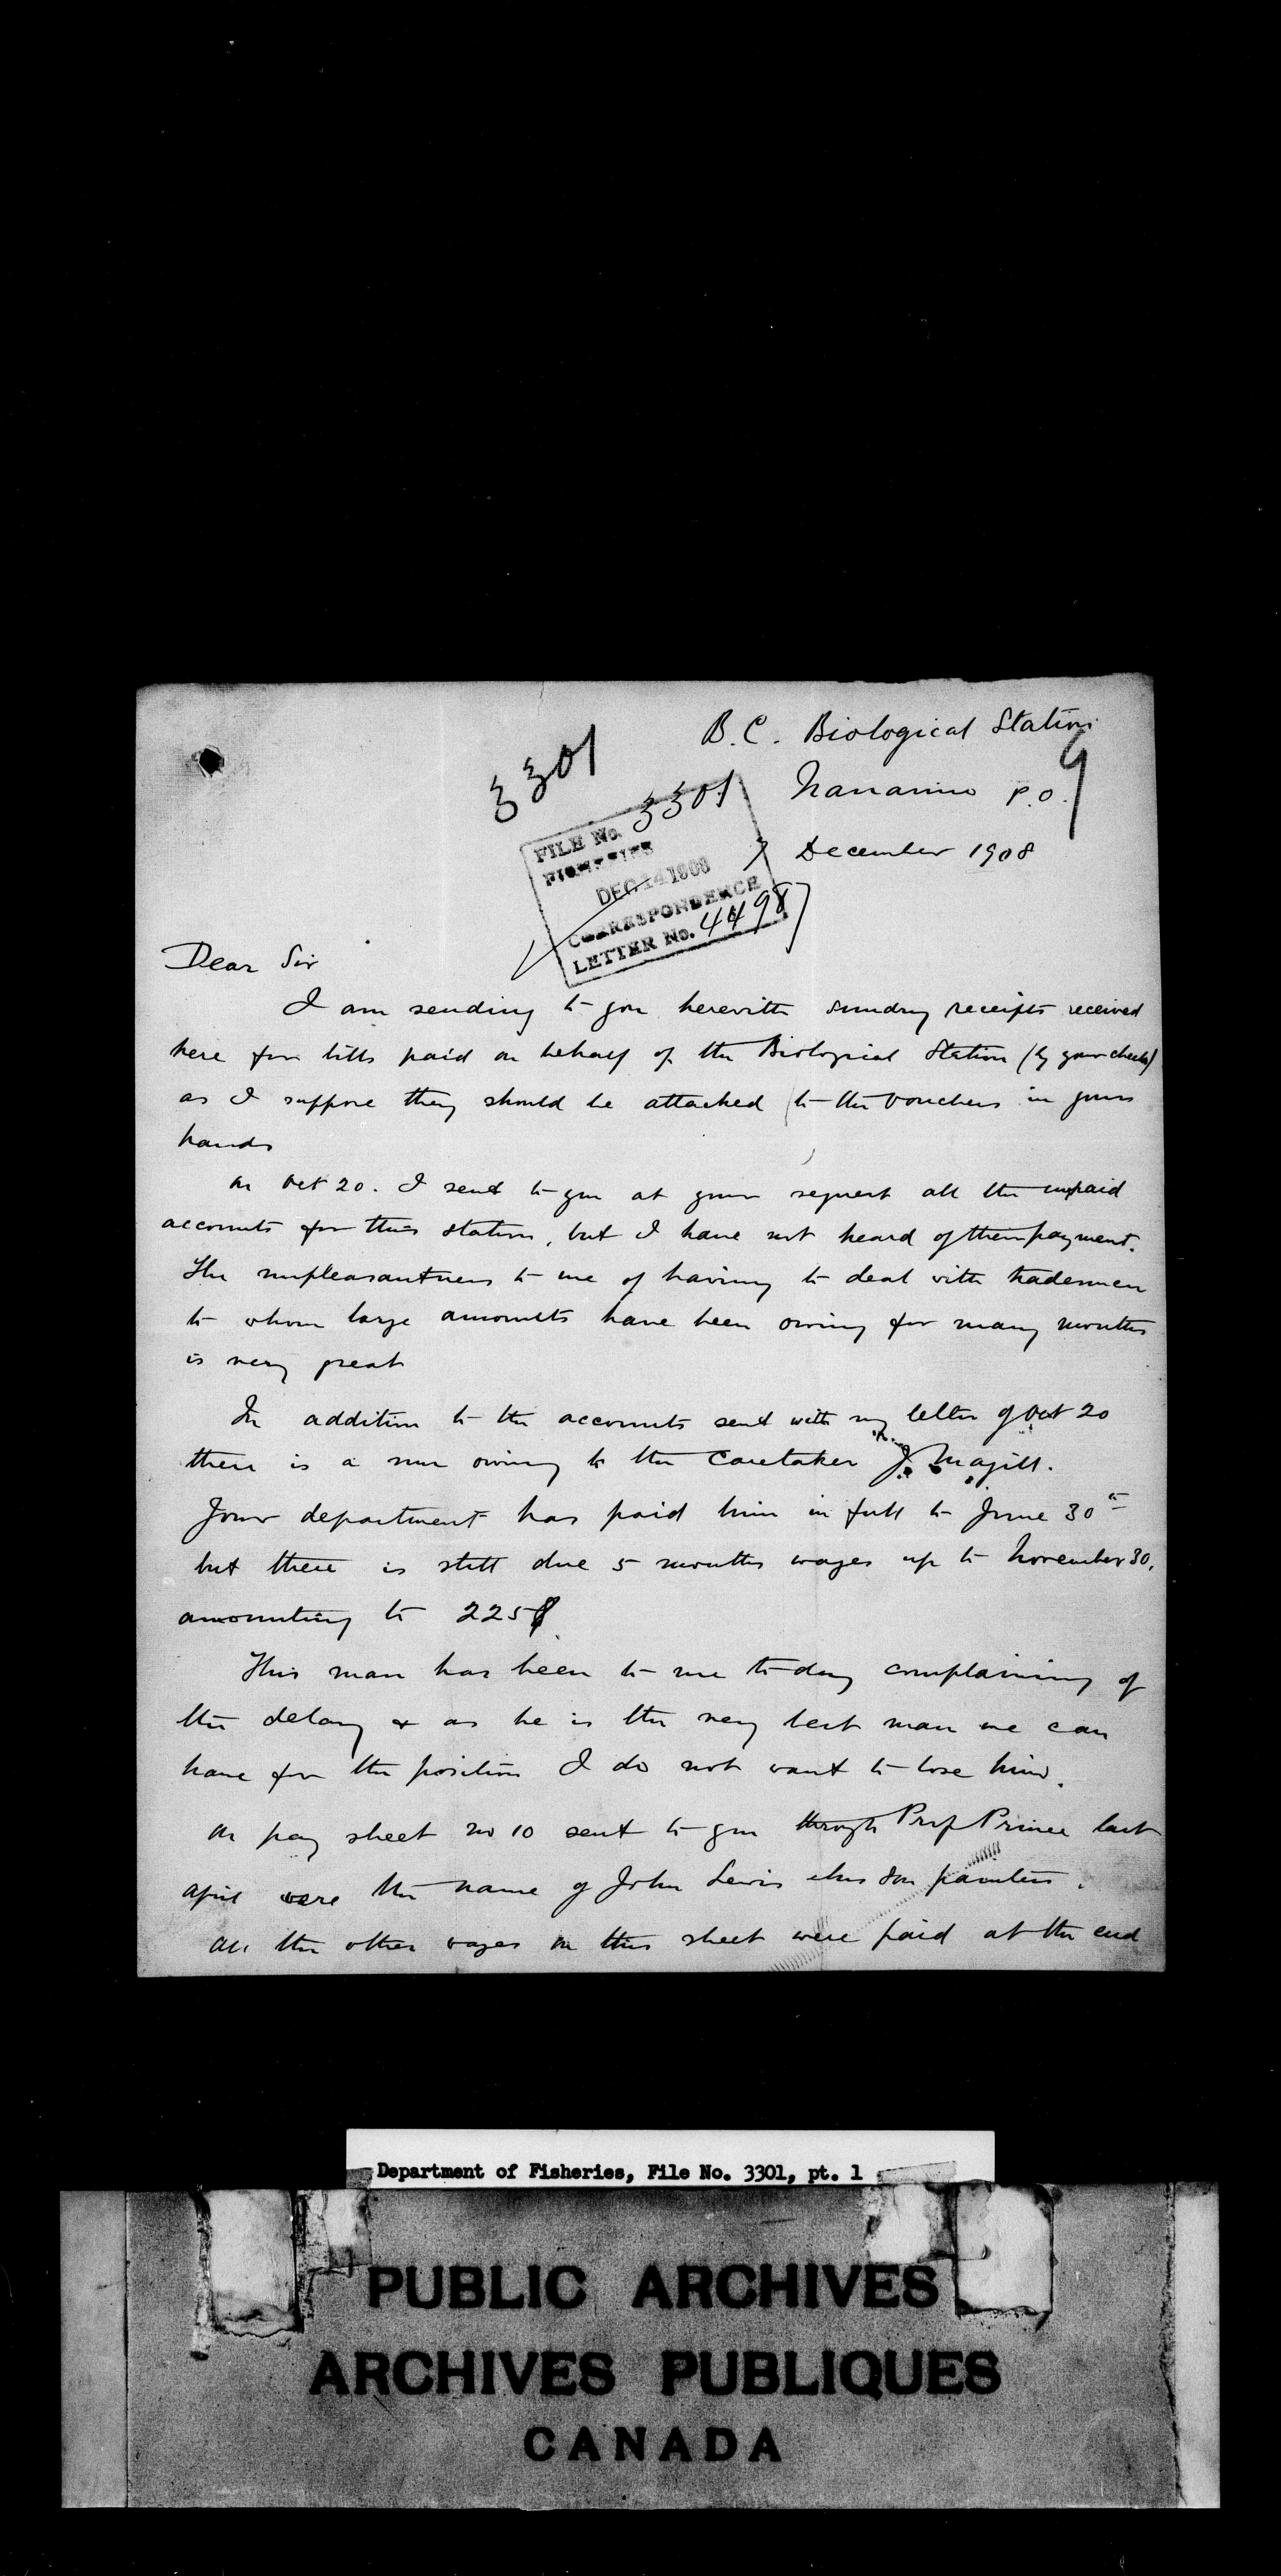 B. C. Biological Station
3301
9
Nanaimo P.O.
FILE No. 3301
FISHERIES
7 December 1908
DEC 14 1908
CORRESPONDENCE
LETTER No. 4498
Dear Sir
I am sending to you herewith sundry receipts received
here for bills paid on behalf of the Biological Station (by your checks)
as I suppose they should be attached to the vouchers in your
hands
On Oct 20. I sent to you at your request all the unpaid
accounts for this station, but I have not heard of their payment.
The unpleasantness to me of having to deal with tradesmen
to whom large amounts have been owing for many months
is very great
In addition to the accounts sent with my letter of Oct 20
there is a sum owing to the Caretaker J. Magill.
Your department has paid him in full to June 30th
but there is still due 5 months wages up to November 30.
amounting to 225$
This man has been to me to-day complaining of
the delay & as he is the very best man we can
have for the position I do not want to lose him.
On pay sheet no 10 sent to you through Prof Prince last
April were the name of John Lewis & Son painters.
All the other wages on this sheet were paid at the end
Department of Fisheries, File No. 3301, pt. 1
PUBLIC ARCHIVES
ARCHIVES PUBLIQUES
CANADA